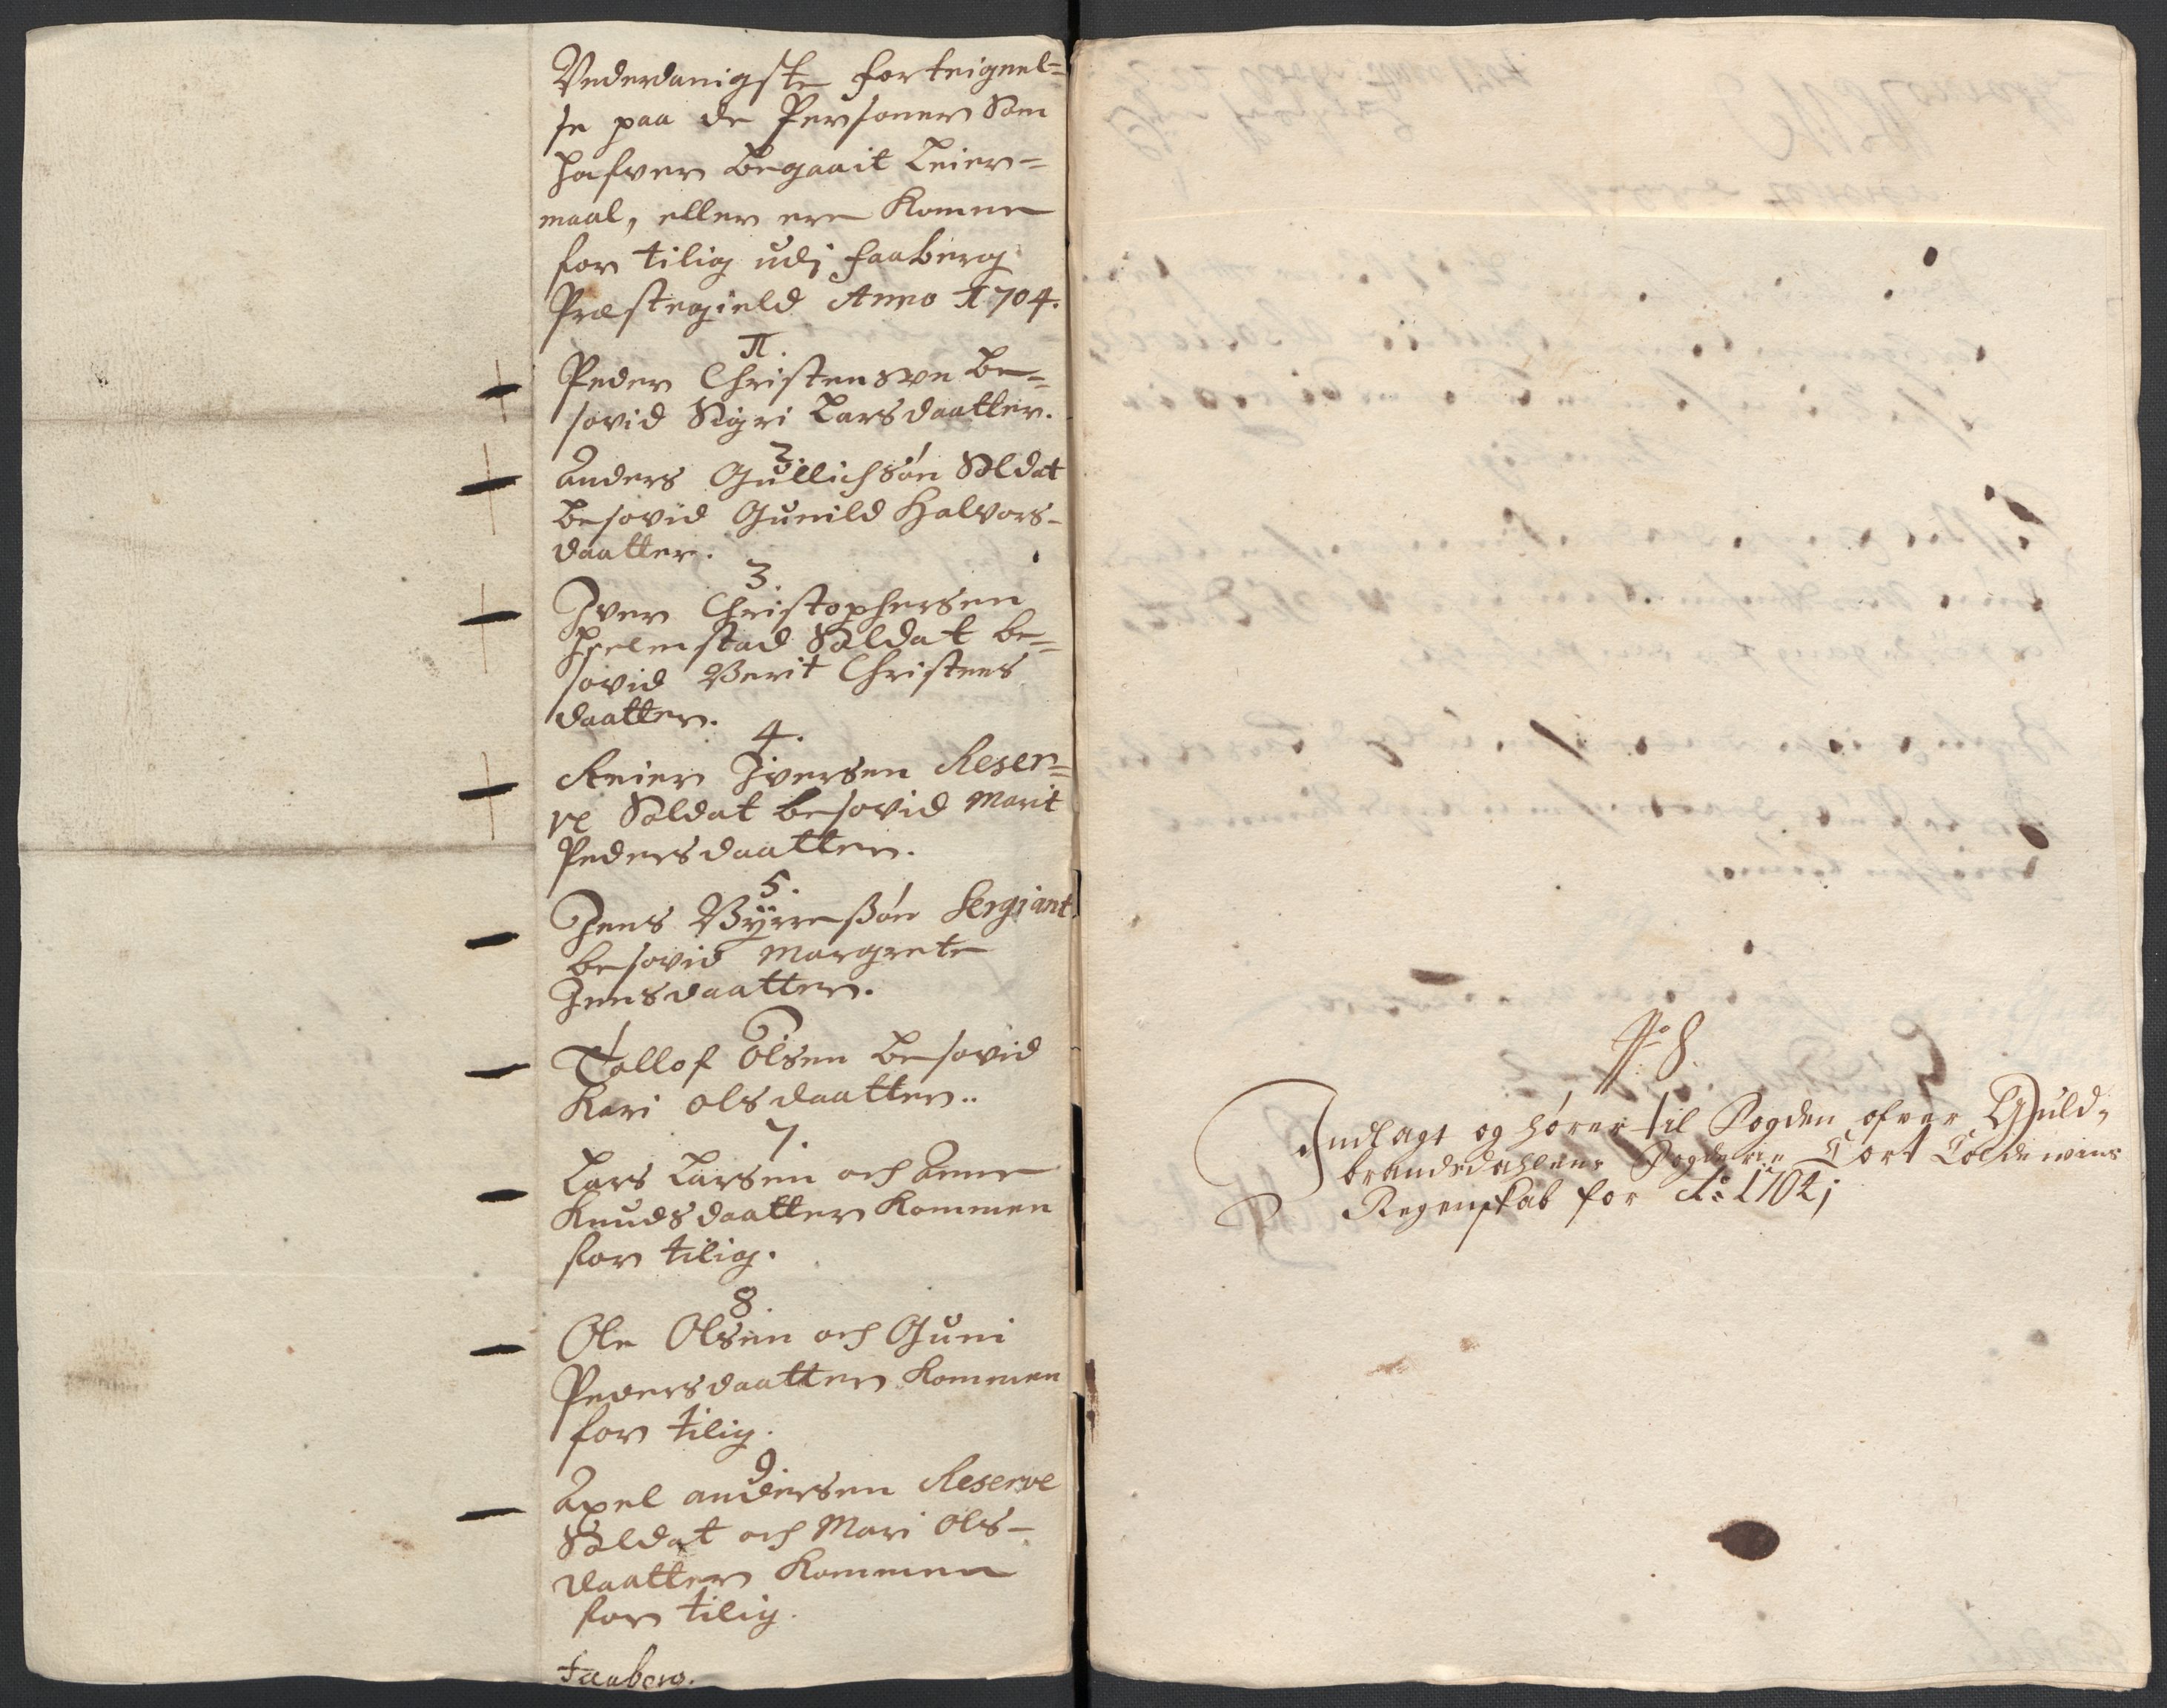 Vederdanigste forteignel=
se paa de Personer Som
hafver begaait Leier=
maal, eller ere Komne
for tilig udj faaberg
Præstegield Anno 1704.
1.
Peder Christensøn be=
sovid Sigri Larsdaatter.
2.
Anders Gullichsøn Soldat
besovid Gunild Halvors-
daatter.
3.
Iver Christophersen
Hielmstad Soldat be=
sovid Berit Christens
daatter.
4.
Reier Iversen Reser=
ve Soldat besovid Marit
Pedersdaatter.
5.
Jens Byrresøn Sergiant
besovid Margrete
Jensdaatter.
Tollof Olsen besovid
Kari olsdaatter..
7.
Lars Larsen och Anne
Knudsdaatter Kommen
for tilig.
8.
Ole Olsen och Guni
Pedersdaatter Kommen
for tilig.
9
Axel andersen Reserve
Soldat och Mari Ols-
daatter Kommen
for tilig.
Faaberg.
No 8.
Indlagt og hører til Fogden ofver Guld,
brandsdahlens Fogderie Cort Coldewins
Regenskab for Ao 1704;